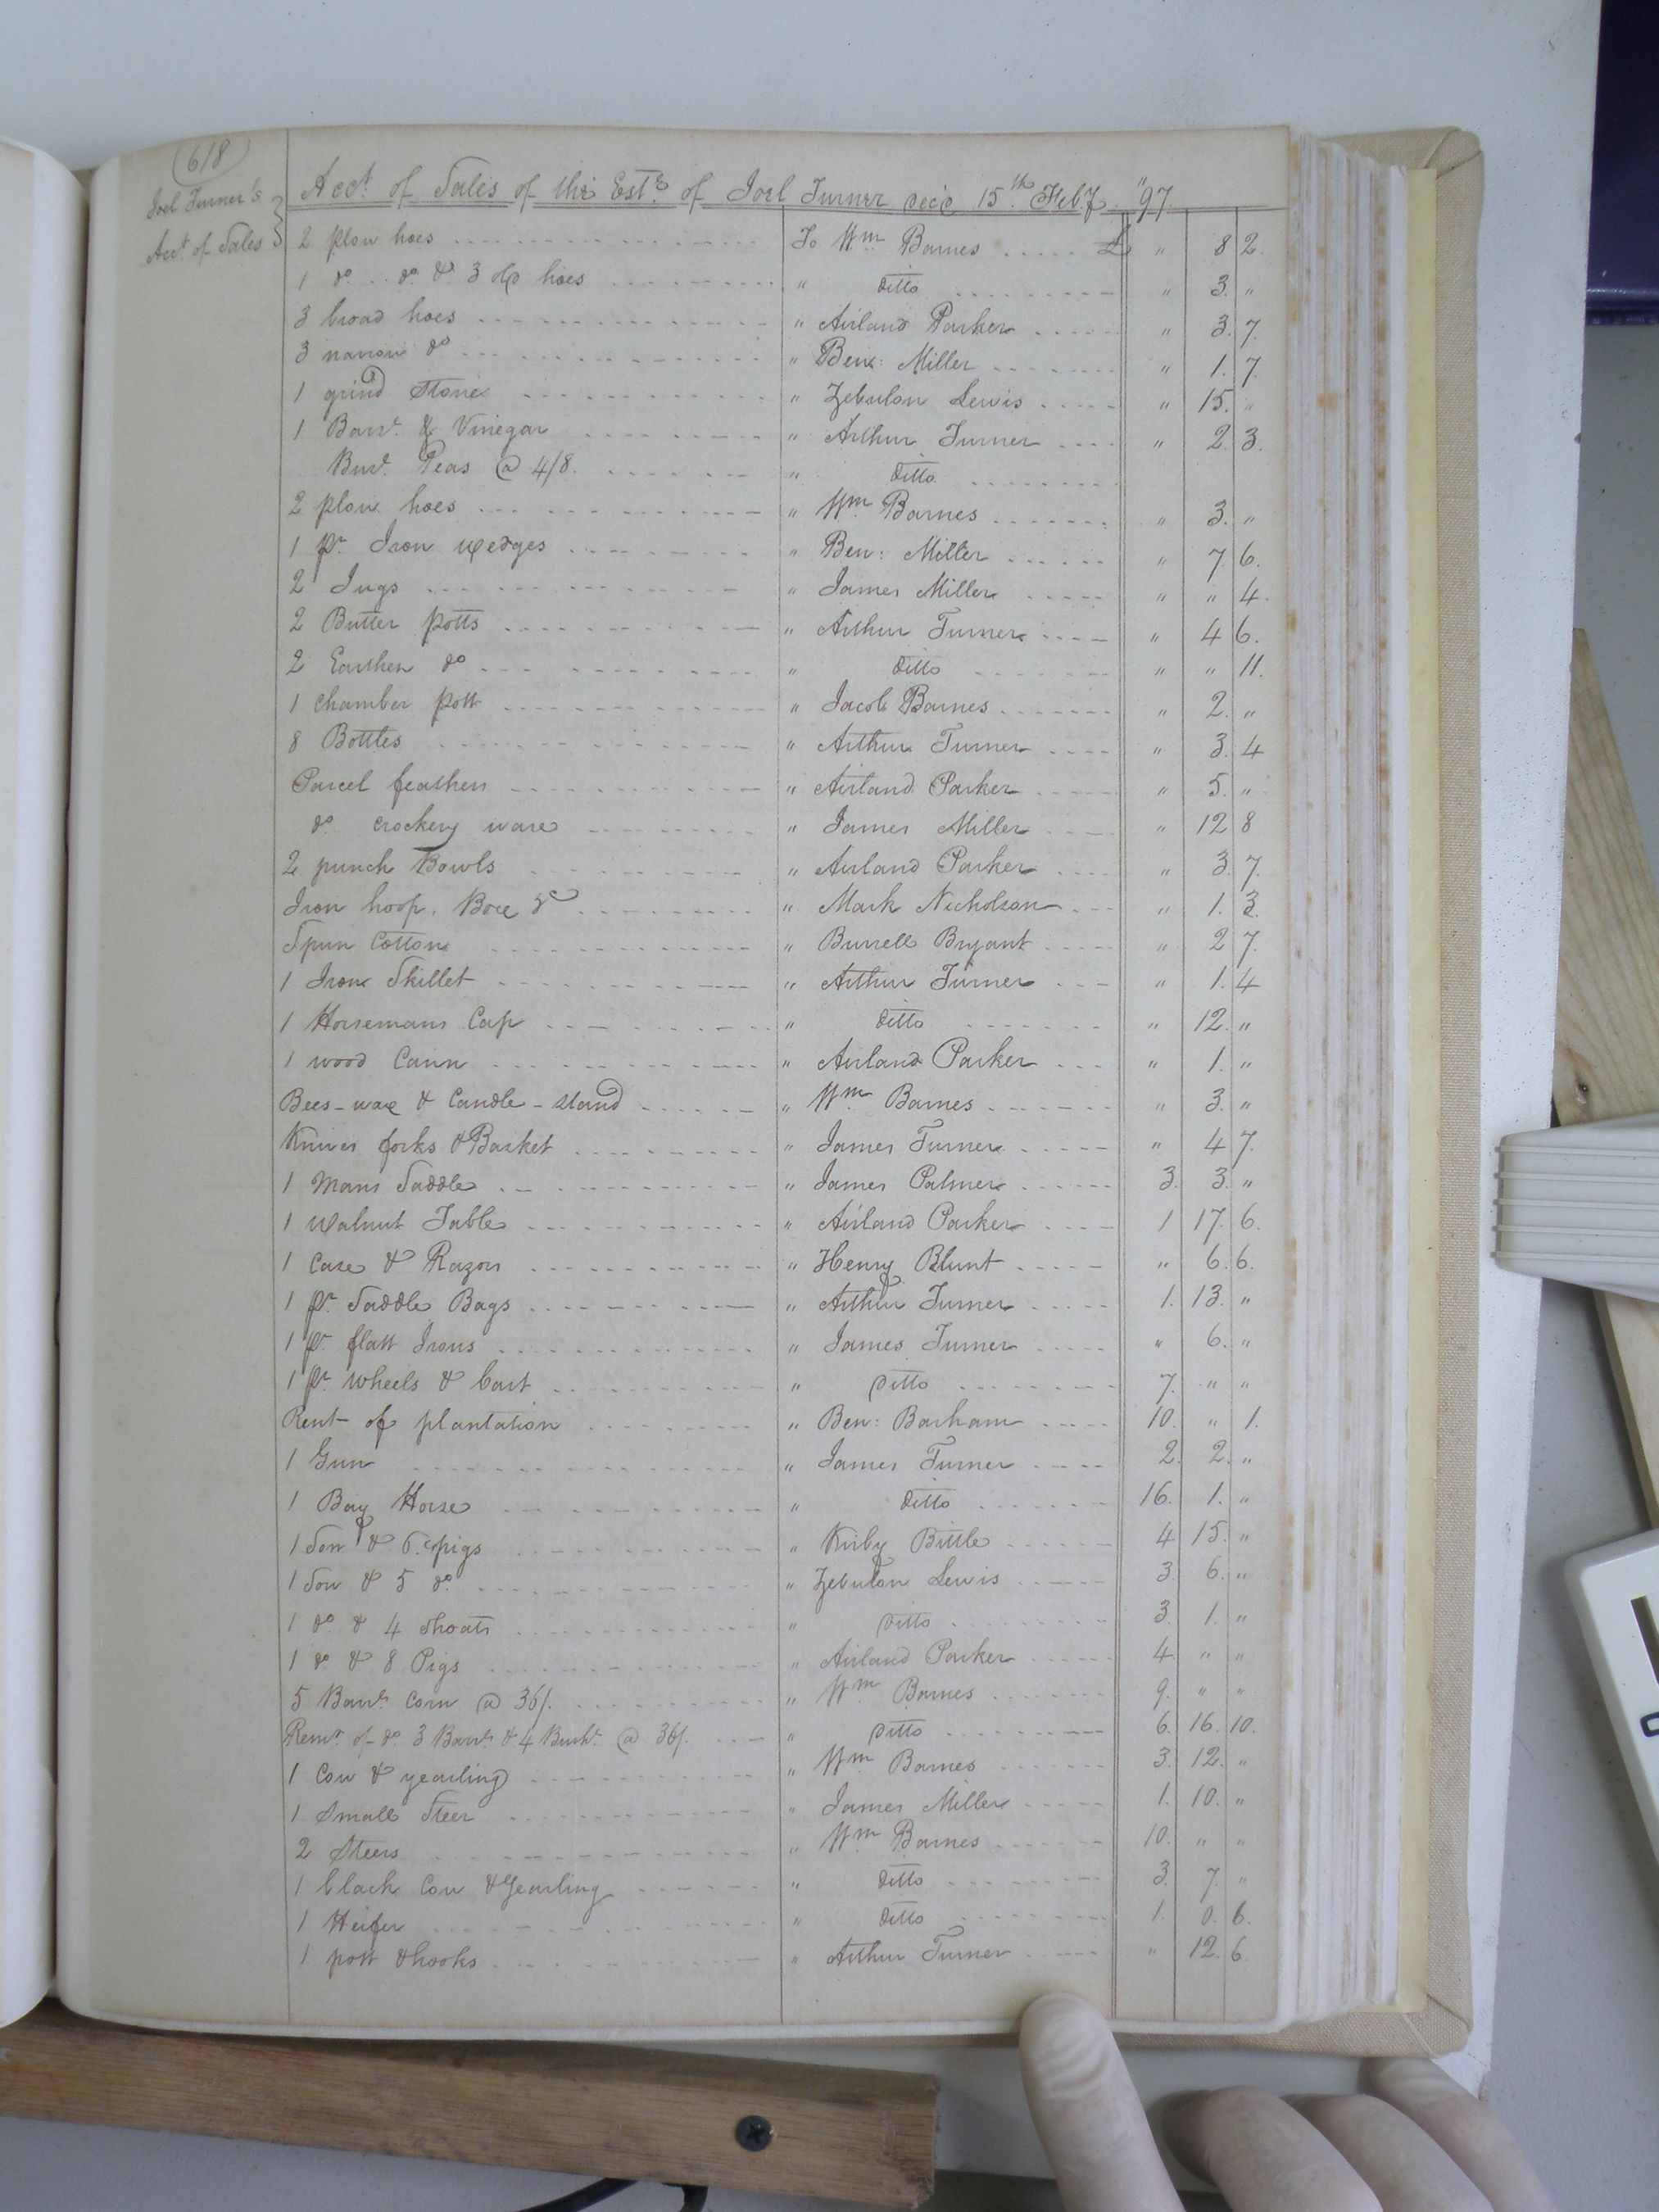 (618)
Joel Turner's
Acct. of Sales
Acct. of Sales of the Este. of Joel Turner dec'd 15th. Feby. "97
2 plow hoes To Wm Barnes £ " 8 2.
1 do. do. & 3 old hoes " ditto " 3. "
3 broad hoes " Airland Parker " 3. 7.
3 narrow do " Ben: Miller " 1. 7.
1 grind Stone " Zebulon Lewis " 15. "
1 Barrl. & Vinegar " Arthur Turner " 2. 3.
Peas @ 4/8. " ditto
2 plow hoes " Wm Barnes " 3. "
1 pr. Iron wedges " Ben: Miller " 7. 6.
2 Jugs " James Miller " " 4.
2 Butter potts " Arthur Turner " 4 6.
2 Earthen do " ditto " " 11.
1 Chamber pott " Jacob Barnes " 2. "
8 Bottles " Arthur Turner " 3. 4
Parcel feathers " Airland Parker " 5. "
do. crockery ware " James Miller " 12 8
2 punch Bowls " Airland Parker " 3. 7.
Iron hoop, Box &c " Mark Nicholson " 1. 3.
Spun Cotton " Burrell Bryant " 2 7.
1 Iron Skillet " Arthur Turner " 1. 4
1 Horsemans Cap " ditto " 12. "
1 wood Cann " Airland Parker " 1. "
Bees-wax & Candle-stand " Wm Barnes " 3. "
Knives forks & Basket " James Turner " 4 7.
1 Mans Saddle " James Palmer 3. 3. "
1 Walnut Table " Airland Parker 1 17. 6.
1 Case & Razors " Henry Blunt " 6. 6.
1 pr. Saddle Bags " Arthur Turner 1. 13. "
1 pr. flatt Irons " James Turner " 6. "
1 pr. wheels & Cart " ditto 7. " "
Rent of plantation " Ben: Barham 10. " 1.
1 Gun " James Turner 2. 2. "
1 Bay Horse " ditto 16. 1. "
1 Sow & 6. pigs " Kirby Bittle 4 15. "
1 Sow & 5 do. " Zebulon Lewis 3 6. "
1 do. & 4 Shoats " ditto 3. 1. "
1 do. & 8 Pigs " Airland Parker 4. " "
5 Barrls. Corn @ 36/. " Wm Barnes 9. " "
Remr. of do. 3 Barrls. & 4 Bushl. @ 36/. " ditto 6. 16. 10.
1 Cow & yearling " Wm Barnes 3. 12. "
1 Small Steer " James Miller 1. 10. "
2 Steers " Wm Barnes 10. " "
1 black Cow & Yearling " ditto 3. 7. "
1 Heifer " ditto 1. 0. 6.
1 pott & hooks " Arthur Turner " 12. 6